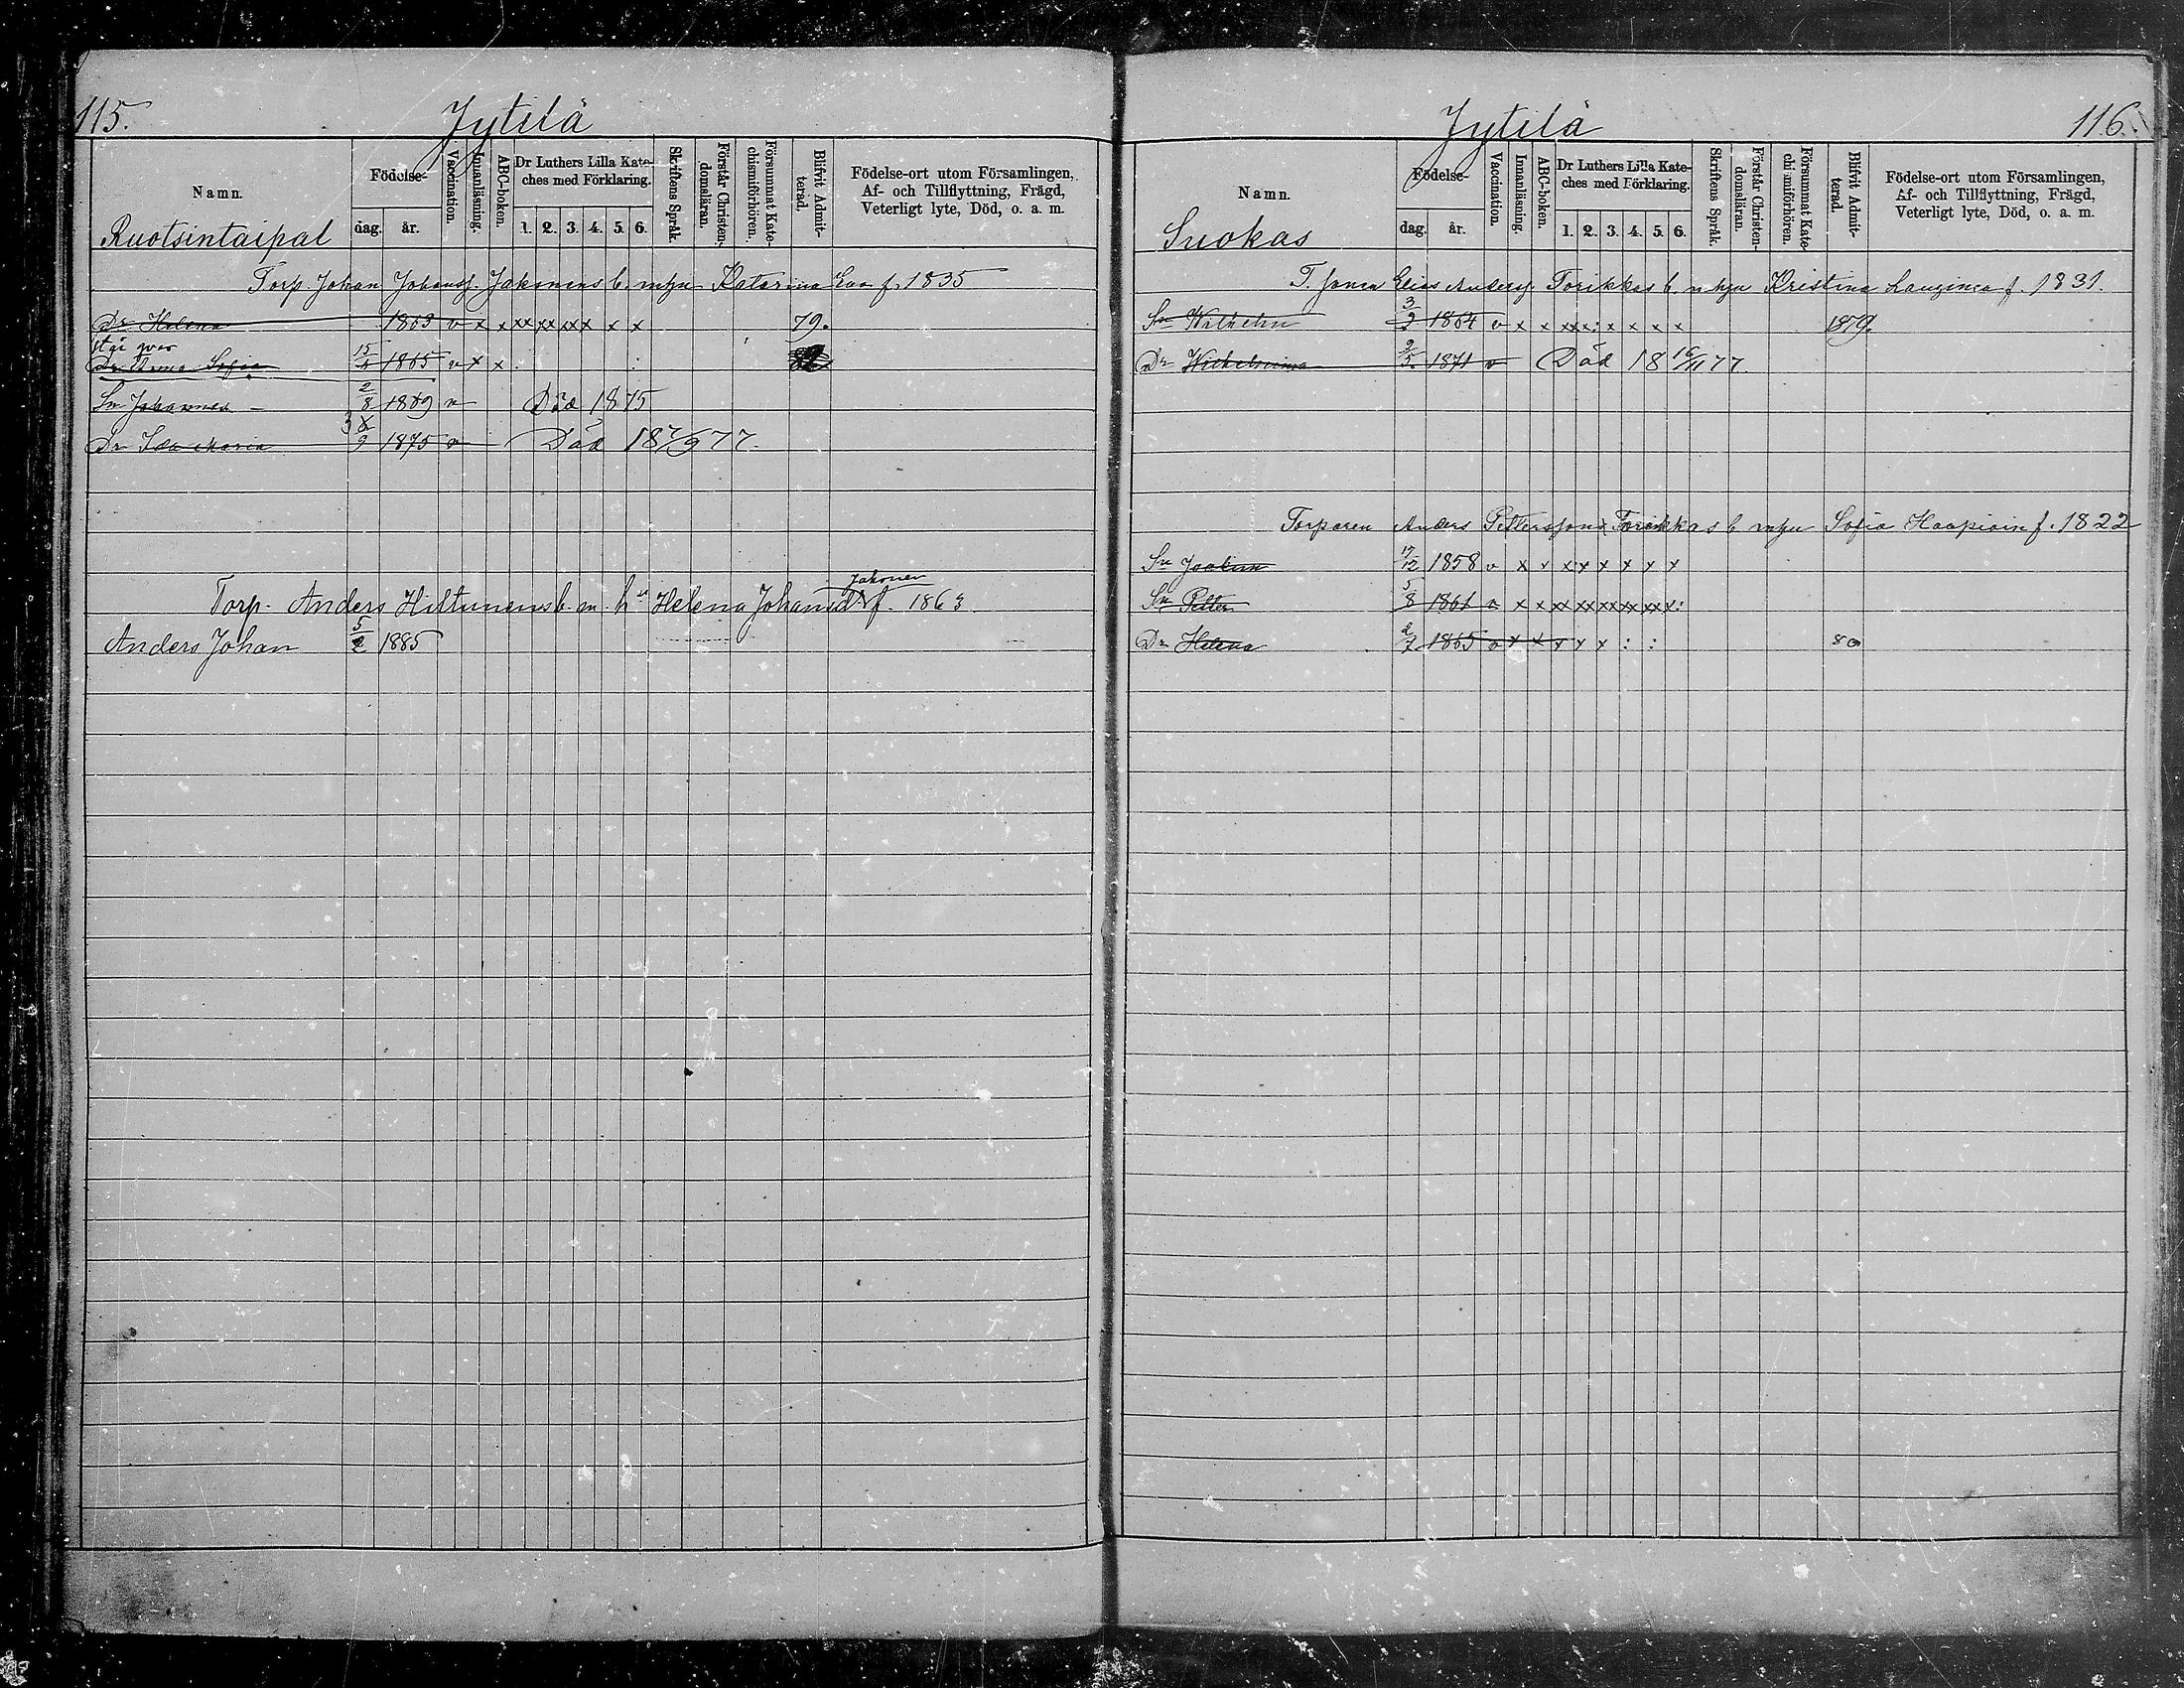 115.
Jytilä
Namn.
Födelse-
dag.
år.
Vaccination.
Innanläsning.
ABC-boken.
Dr Luthers Lilla Kate-
ches med Förklaring.
1. 2. 3. 4. 5. 6.
Skriftens Språk.
Förstår Christen-
domsläran.
Försummat Kate-
chismiförhören.
Blifvit Admit-
terad.
Födelse-ort utom Församlingen,
Af- och Tillflyttning, Frägd,
Veterligt lyte, Död, o. a. m.
Ruotsintaipal
Torp. Johan Johanss. Jakonens b. m. hu Katarina f. 1835
Dr Helena 1863 v x x xx xx xx x x 79.
Dr Anna Sofia 15/4 1865 v x x :
Sn Johannes - 2/8 1869 v Död 1875
Dr Ida Maria 9 1875 v Död 18 7/9 77.
Jakonen
Torp. Anders Hiltunens b. m. hu Helena Johansdr f. 1863
Anders Johan 5/2 1885
116.
Jytilä
Namn.
Födelse-
dag.
år.
Vaccination.
Innanläsning.
ABC-boken.
Dr Luthers Lilla Kate-
ches med Förklaring.
1. 2. 3. 4. 5. 6.
Skriftens Språk.
Förstår Christen-
domsläran.
Försummat Kate-
chismiförhören.
Blifvit Admit-
terad.
Födelse-ort utom Församlingen,
Af- och Tillflyttning, Frägd,
Veterligt lyte, Död, o. a. m.
Suokas
T. Elias Anderss. Torikkas b. m hu Kristina f. 1831.
Sn Wilhelm 3/9 1864 v x x xx x: x x x x 1879.
Dr Wilhelmina 9/5 1871 v Död 18 16/11 77
Torparen Anders Petterssons Torikkas b m hu Sofia Haapiain f. 1822
Sn 17/12 1858 v x x x x x x x x
Sn Petter 5/8 1861 v x x xx xx xx xx xx x:
Dr Helena 2/7 1865 v x x x x x : : 80